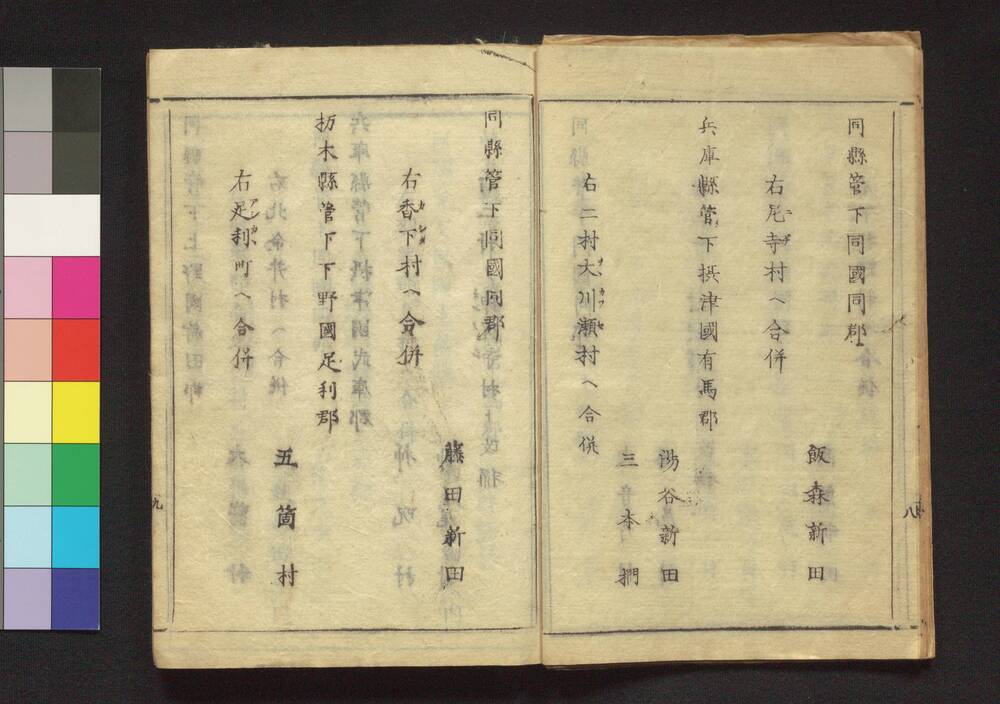 同縣管下同國同郡
飯森新田
右尼寺村ヘ合併
兵庫縣管下摂津國有馬郡
湯谷新田
三本
右二村大川瀬村ヘ合併
八
同縣管下同國同郡
藤田新田
右香下村ヘ合併
栃木縣管下下野國足利郡
五箇村
右足利町ヘ合併
九